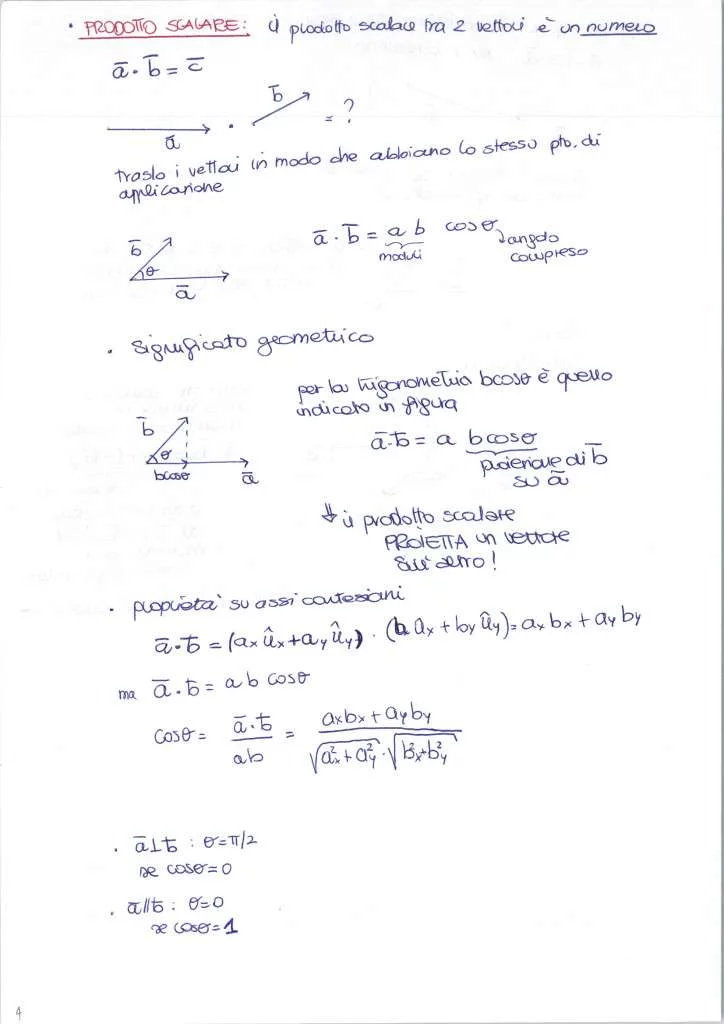 • PRODOTTO SCALARE: il prodotto scalare tra 2 vettori è un numero
a̅ · b̅ = c̅
a̅ · b̅ = ?
traslo i vettori in modo che abbiano lo stesso pto. di
applicazione
b̅ θ a̅
a̅ · b̅ = a b cosθ
moduli
angolo
compreso
• significato geometrico
per la trigonometria bcosθ è quello
indicato in figura
b̅ θ bcosθ a̅
a̅·b̅ = a bcosθ
proiezione di b̅
su a̅
⇓ il prodotto scalare
PROIETTA un vettore
sull'altro!
• proprietà su assi cartesiani
a̅·b̅ = (aₓ ûₓ + a_y û_y) · (b aₓ + b_y û_y) = aₓ bₓ + a_y b_y
ma a̅ · b̅ = a b cosθ
cosθ = a̅·b̅ / ab = aₓbₓ + a_y b_y / √(aₓ² + a_y²) · √(bₓ² + b_y²)
• a̅ ⊥ b̅ : θ = π/2
se cosθ = 0
• a̅ // b̅ : θ = 0
se cosθ = 1
4